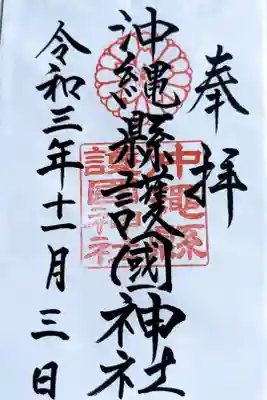 奉拝
沖縄縣護國神社
沖縄縣護國神社
令和三年十一月三日